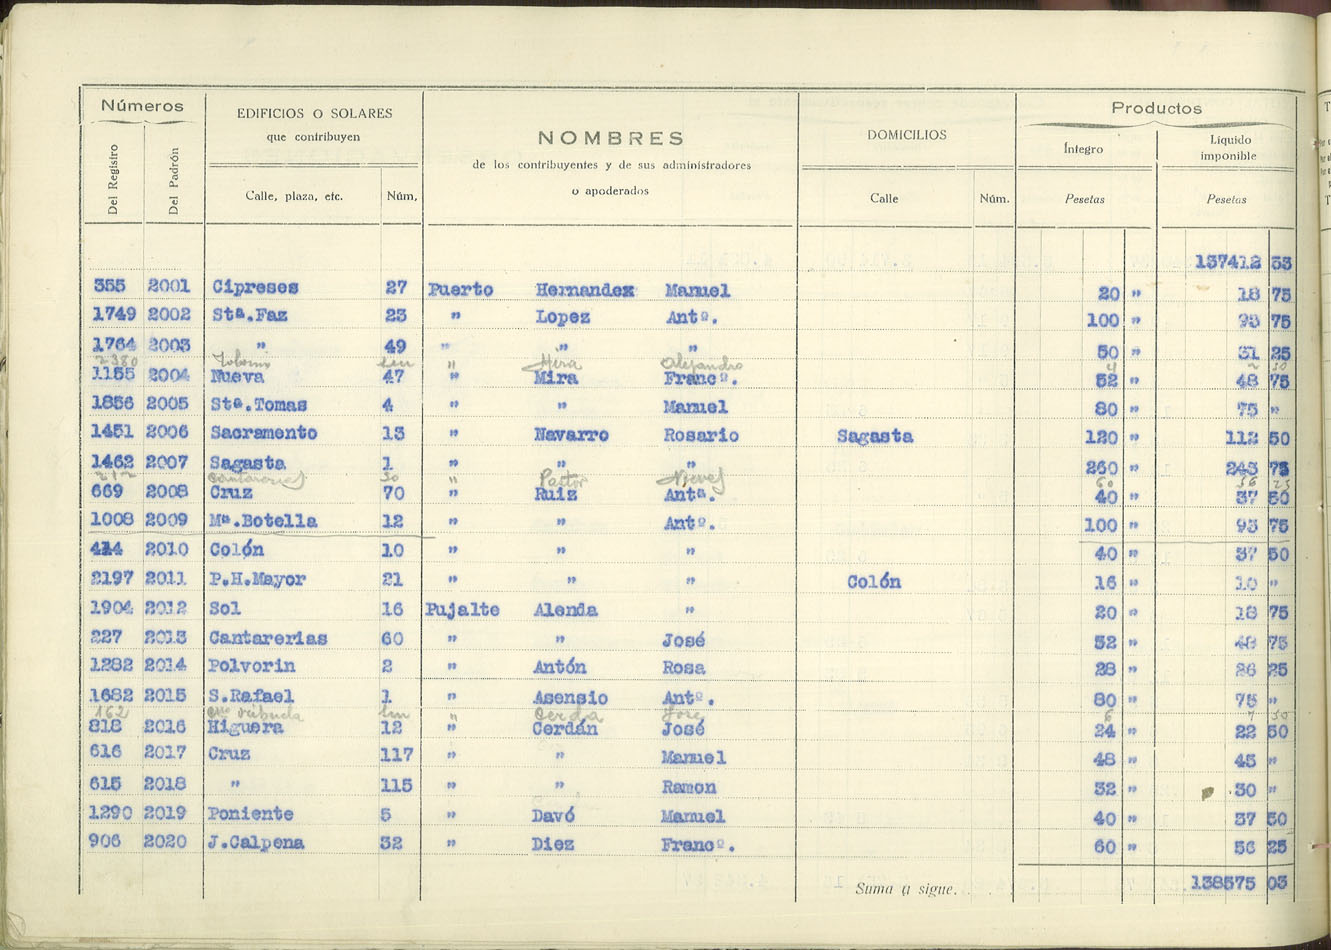 Números
EDIFICIOS O SOLARES
que contribuyen
NOMBRES
de los contribuyentes y de sus administradores
o apoderados
DOMICILIOS
Productos
Del Registro
Del Padrón
Calle, plaza, etc.
Núm,
Calle
Núm.
Íntegro
Pesetas
Líquido
imponible
Pesetas
137412 53
355 2001 Cipreses 27 Puerto Hernandez Manuel 20 " 18 75
1749 2002 Stª.Faz 23 " Lopez Antº. 100 " 93 75
1764 2003 " 49 " " " 50 " 31 25
2380 " Mira Alejandro
1155 2004 Nueva 47 " Mira Francº. 52 " 48 75
1856 2005 Stª.Tomas 4 " " Manuel 80 " 75 "
1451 2006 Sacramento 13 " Navarro Rosario Sagasta 120 " 112 50
1462 2007 Sagasta 1 " " " 260 " 243 75
212 Cantarerias 30 " Pastor Nieves 60 56 25
669 2008 Cruz 70 " Ruiz Antª. 40 " 37 50
1008 2009 Mª.Botella 12 " " Antº. 100 " 93 75
414 2010 Colón 10 " " " 40 " 37 50
2197 2011 P.H.Mayor 21 " " " Colón 16 " 10 "
1904 2012 Sol 16 Pujalte Alenda " 20 " 18 75
227 2013 Cantarerias 60 " " José 52 " 48 75
1282 2014 Polvorin 2 " Antón Rosa 28 " 26 25
1682 2015 S.Rafael 1 " Asensio Antº. 80 " 75 "
162 " Cerda José
818 2016 Higuera 12 " Cerdán José 24 " 22 50
616 2017 Cruz 117 " " Manuel 48 " 45 "
615 2018 " 115 " " Ramon 32 " 30 "
1290 2019 Poniente 5 " Davó Manuel 40 " 37 50
906 2020 J.Calpena 32 " Diez Francº. 60 " 56 25
Suma a sigue. 138575 03